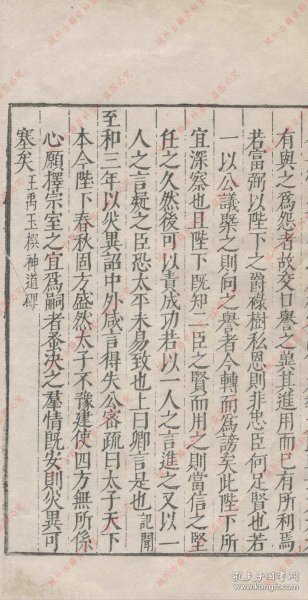 有與之為怨者故交口譽之冀其進用而已有所利焉
若富弼以陛下之爵祿樹私恩則非忠臣何足賢也若
一以公議槩之則向之譽者今轉而為謗矣此陛下所
宜深察也且陛下既知二臣之賢而用之則當信之堅
任之久然後可以責成功若以一人之言進之又以一
人之言疑之臣恐太平未易致也上曰卿言是也記聞
至和三年以災異詔中外咸言得失公密疏曰太子天下
本今陛下春秋固方盛然太子不豫建使四方無所係
心願擇宗室之宜為嗣者蚤決之羣情既安則災異可
塞矣王禹玉撰神道碑
孔夫子旧书网